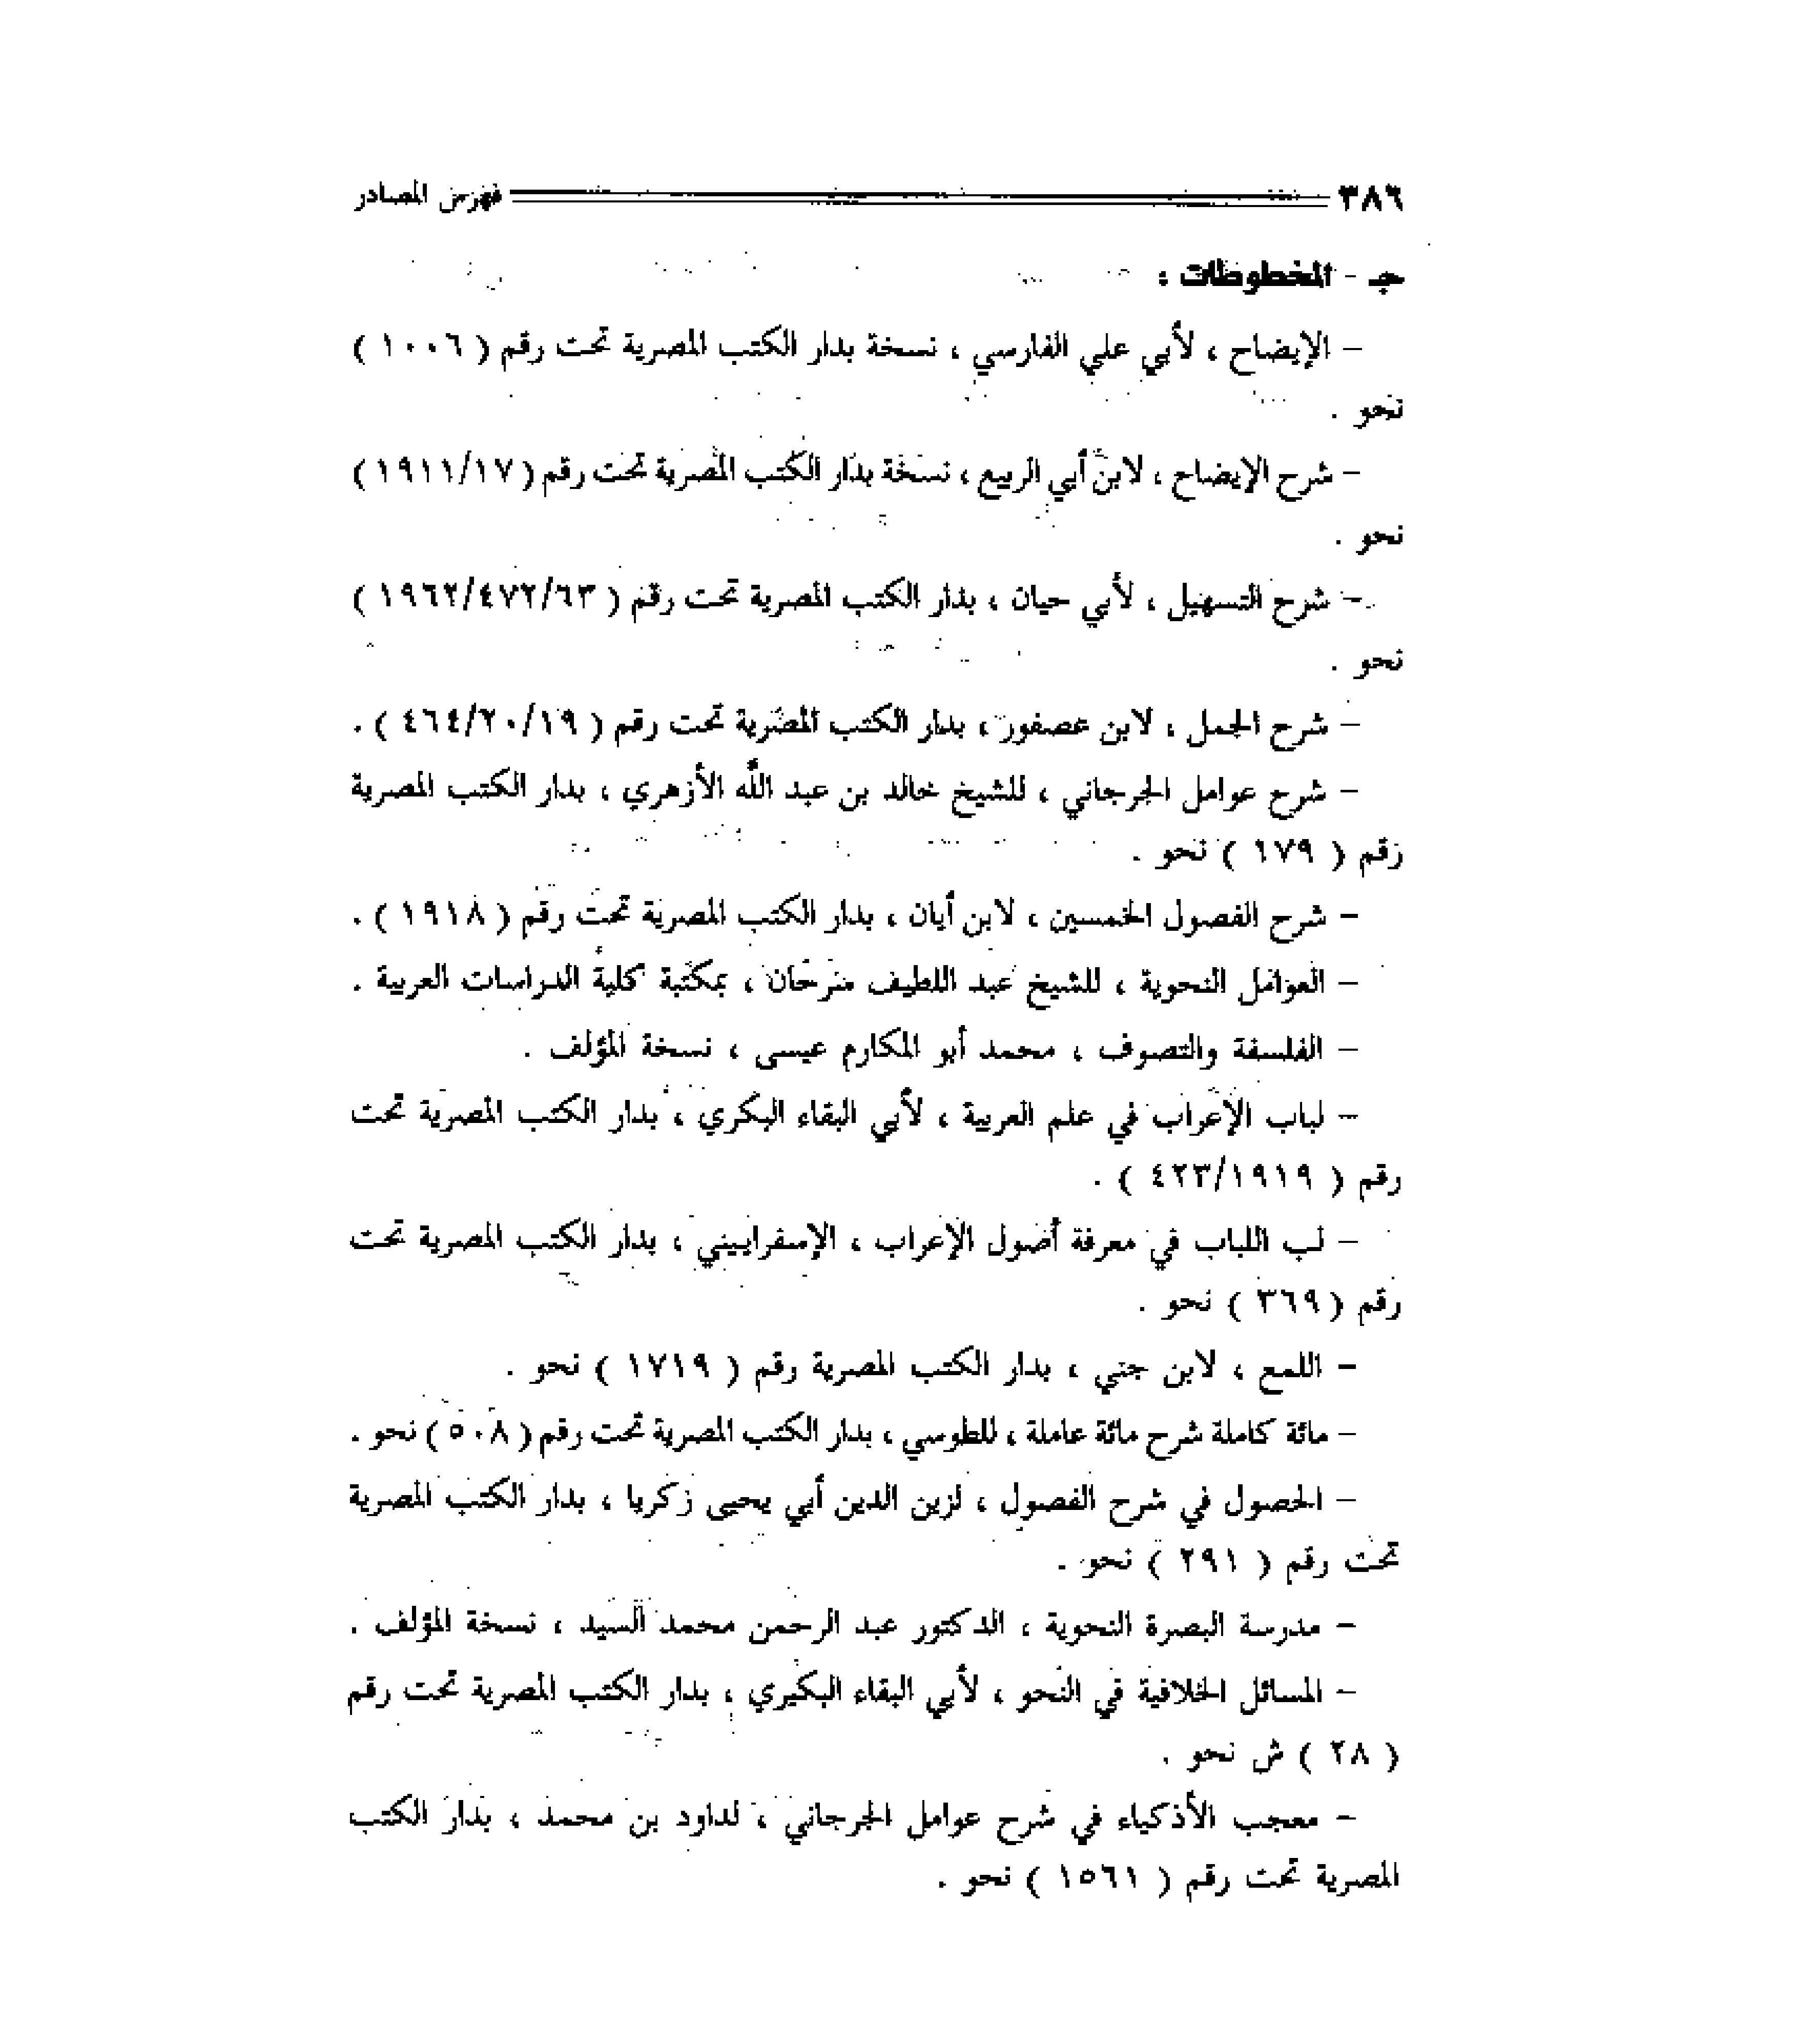 ٣٨٦ فهرس المصادر
جـ - المخطوطات :
- الإيضاح ، لأبي علي الفارسي ، نسخة بدار الكتب المصرية تحت رقم ( ١٠٠٦ )
نحو .
- شرح الإيضاح ، لابن أبي الربيع ، نسخة بدار الكتب المصرية تحت رقم ( ١٩١١/١٧ )
نحو .
- شرح التسهيل ، لأبي حيان ، بدار الكتب المصرية تحت رقم ( ١٩٦٢/٤٧٢/٦٣ )
نحو .
- شرح الجمل ، لابن عصفور ، بدار الكتب المصرية تحت رقم ( ٤٦٤/٢٠/١٩ ) .
- شرح عوامل الجرجاني ، للشيخ خالد بن عبد الله الأزهري ، بدار الكتب المصرية
رقم ( ١٧٩ ) نحو .
- شرح الفصول الخمسين ، لابن أيان ، بدار الكتب المصرية تحت رقم ( ١٩١٨ ) .
- العوامل النحوية ، للشيخ عبد اللطيف سرحان ، بمكتبة كلية الدراسات العربية .
- الفلسفة والتصوف ، محمد أبو المكارم عيسى ، نسخة المؤلف .
- لباب الإعراب في علم العربية ، لأبي البقاء البكري ، بدار الكتب المصرية تحت
رقم ( ٤٢٣/١٩١٩ ) .
- لب اللباب في معرفة أصول الإعراب ، الإسفراييني ، بدار الكتب المصرية تحت
رقم ( ٣٦٩ ) نحو .
- اللمع ، لابن جني ، بدار الكتب المصرية رقم ( ١٧١٩ ) نحو .
- مائة كاملة شرح مائة عاملة ، للطوسي ، بدار الكتب المصرية تحت رقم ( ٥٠٨ ) نحو .
- الحصول في شرح الفصول ، لزين الدين أبي يحيى زكريا ، بدار الكتب المصرية
تحت رقم ( ٢٩١ ) نحو .
- مدرسة البصرة النحوية ، الدكتور عبد الرحمن محمد السيد ، نسخة المؤلف .
- المسائل الخلافية في النحو ، لأبي البقاء البكيري ، بدار الكتب المصرية تحت رقم
( ٢٨ ) ش نحو .
- معجب الأذكياء في شرح عوامل الجرجاني ، لداود بن محمد ، بدار الكتب
المصرية تحت رقم ( ١٥٦١ ) نحو .